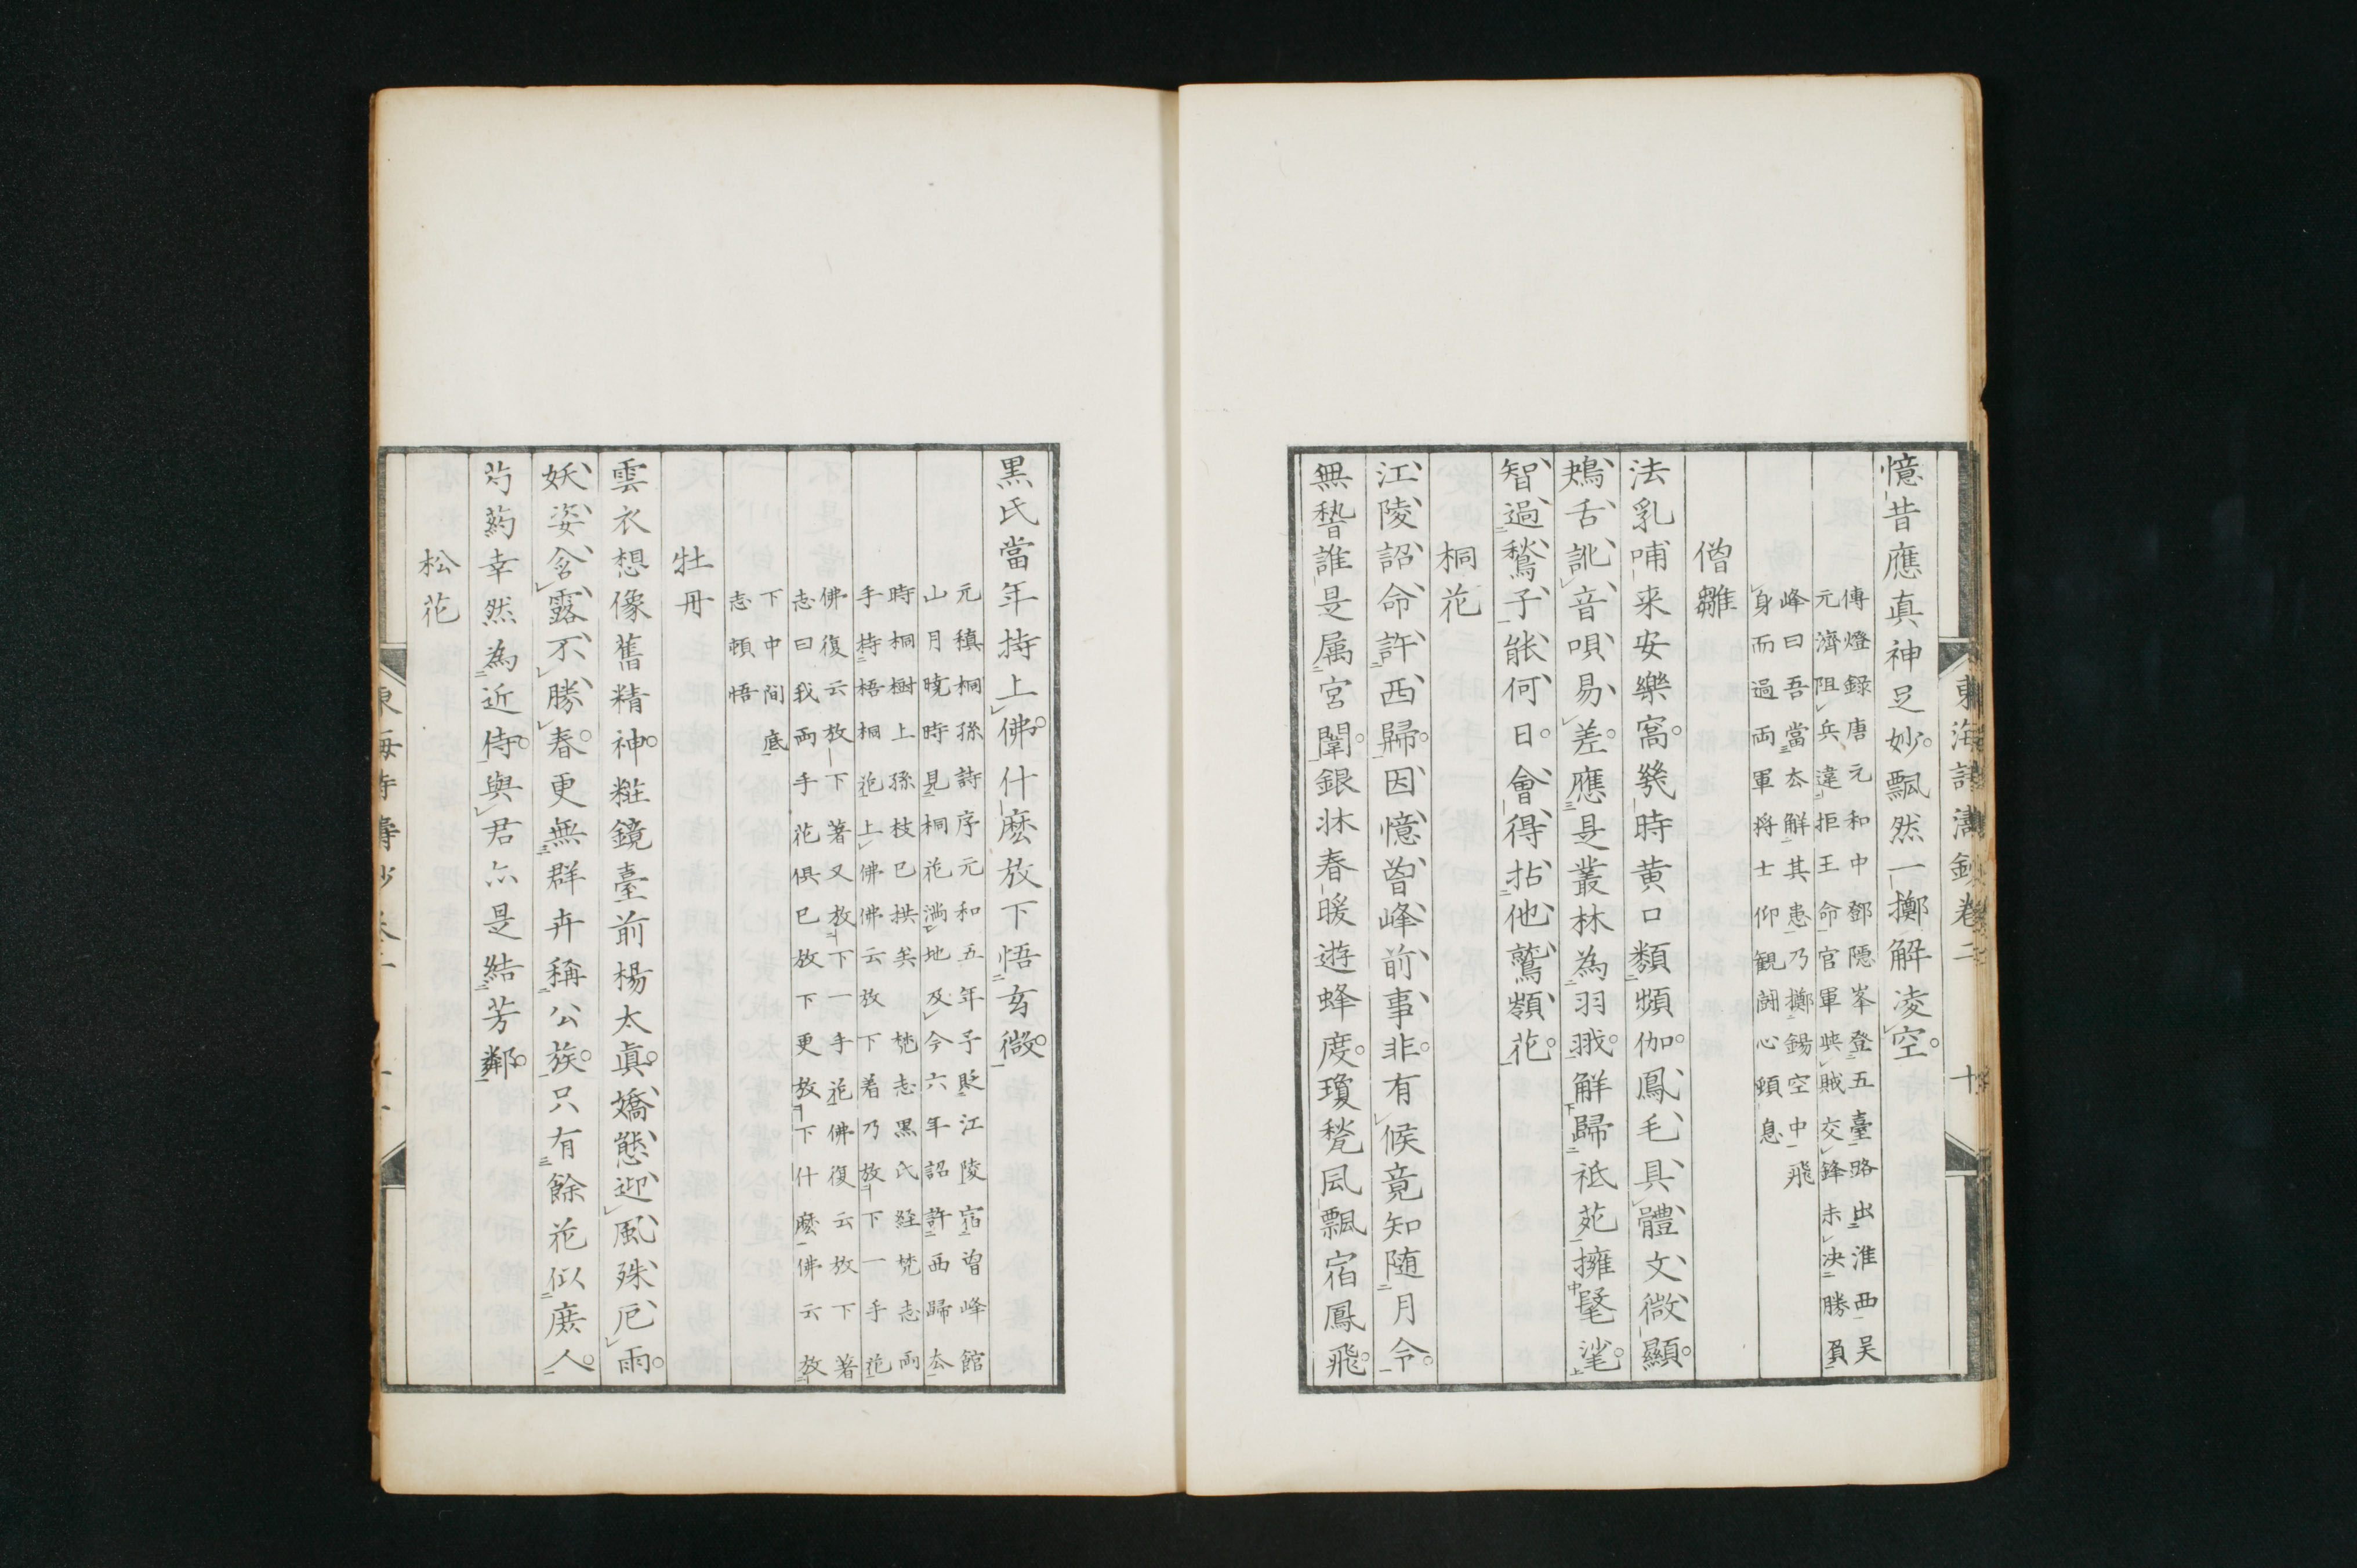 憶昔應真神足妙飄然一擲解凌空
傳燈録唐元和中鄧隱峯登五臺路出淮西吴
元濟阻兵違拒王命官軍與賊交鋒未决勝負
峰曰吾當去解其患乃擲錫空中飛
身而過両軍将士仰観闘心頓息
僧雛
法乳哺来安樂窩幾時黄口類頻伽鳳毛具體文微顯
鴂舌訛音唄易差應是叢林為羽翼觧歸祗苑擁毰毸
智過鶖子能何日會得拈他鷲嶺花
桐花
江陵詔命許西歸因憶曽峰前事非有候竟知随月令
無㛰誰是属宮闈銀牀春暖遊蜂度瓊甃風飄宿鳳飛
東海詩濤鈔卷二 十
黒氏當年持上佛什麽放下悟玄微
元稹桐孫詩序元和五年予貶江陵宿曽峰館
山月曉時見桐花満地及今六年詔許西歸去
時桐樹上孫枝已拱矣 梵志黒氏経梵志両
手持梧桐花上佛佛云放下着乃放下一手花
佛復云放下著又放下一手花佛復云放下著
志曰我両手花俱已放下更放下什麽佛云放
下中間底
志頓悟
牡丹
雲衣想像舊精神粧鏡臺前楊太眞嬌態迎風殊厄雨
妖姿含露不勝春更無群卉稱公族只有餘花似庶人
芍葯幸然為近侍與君亦是結芳鄰
松花